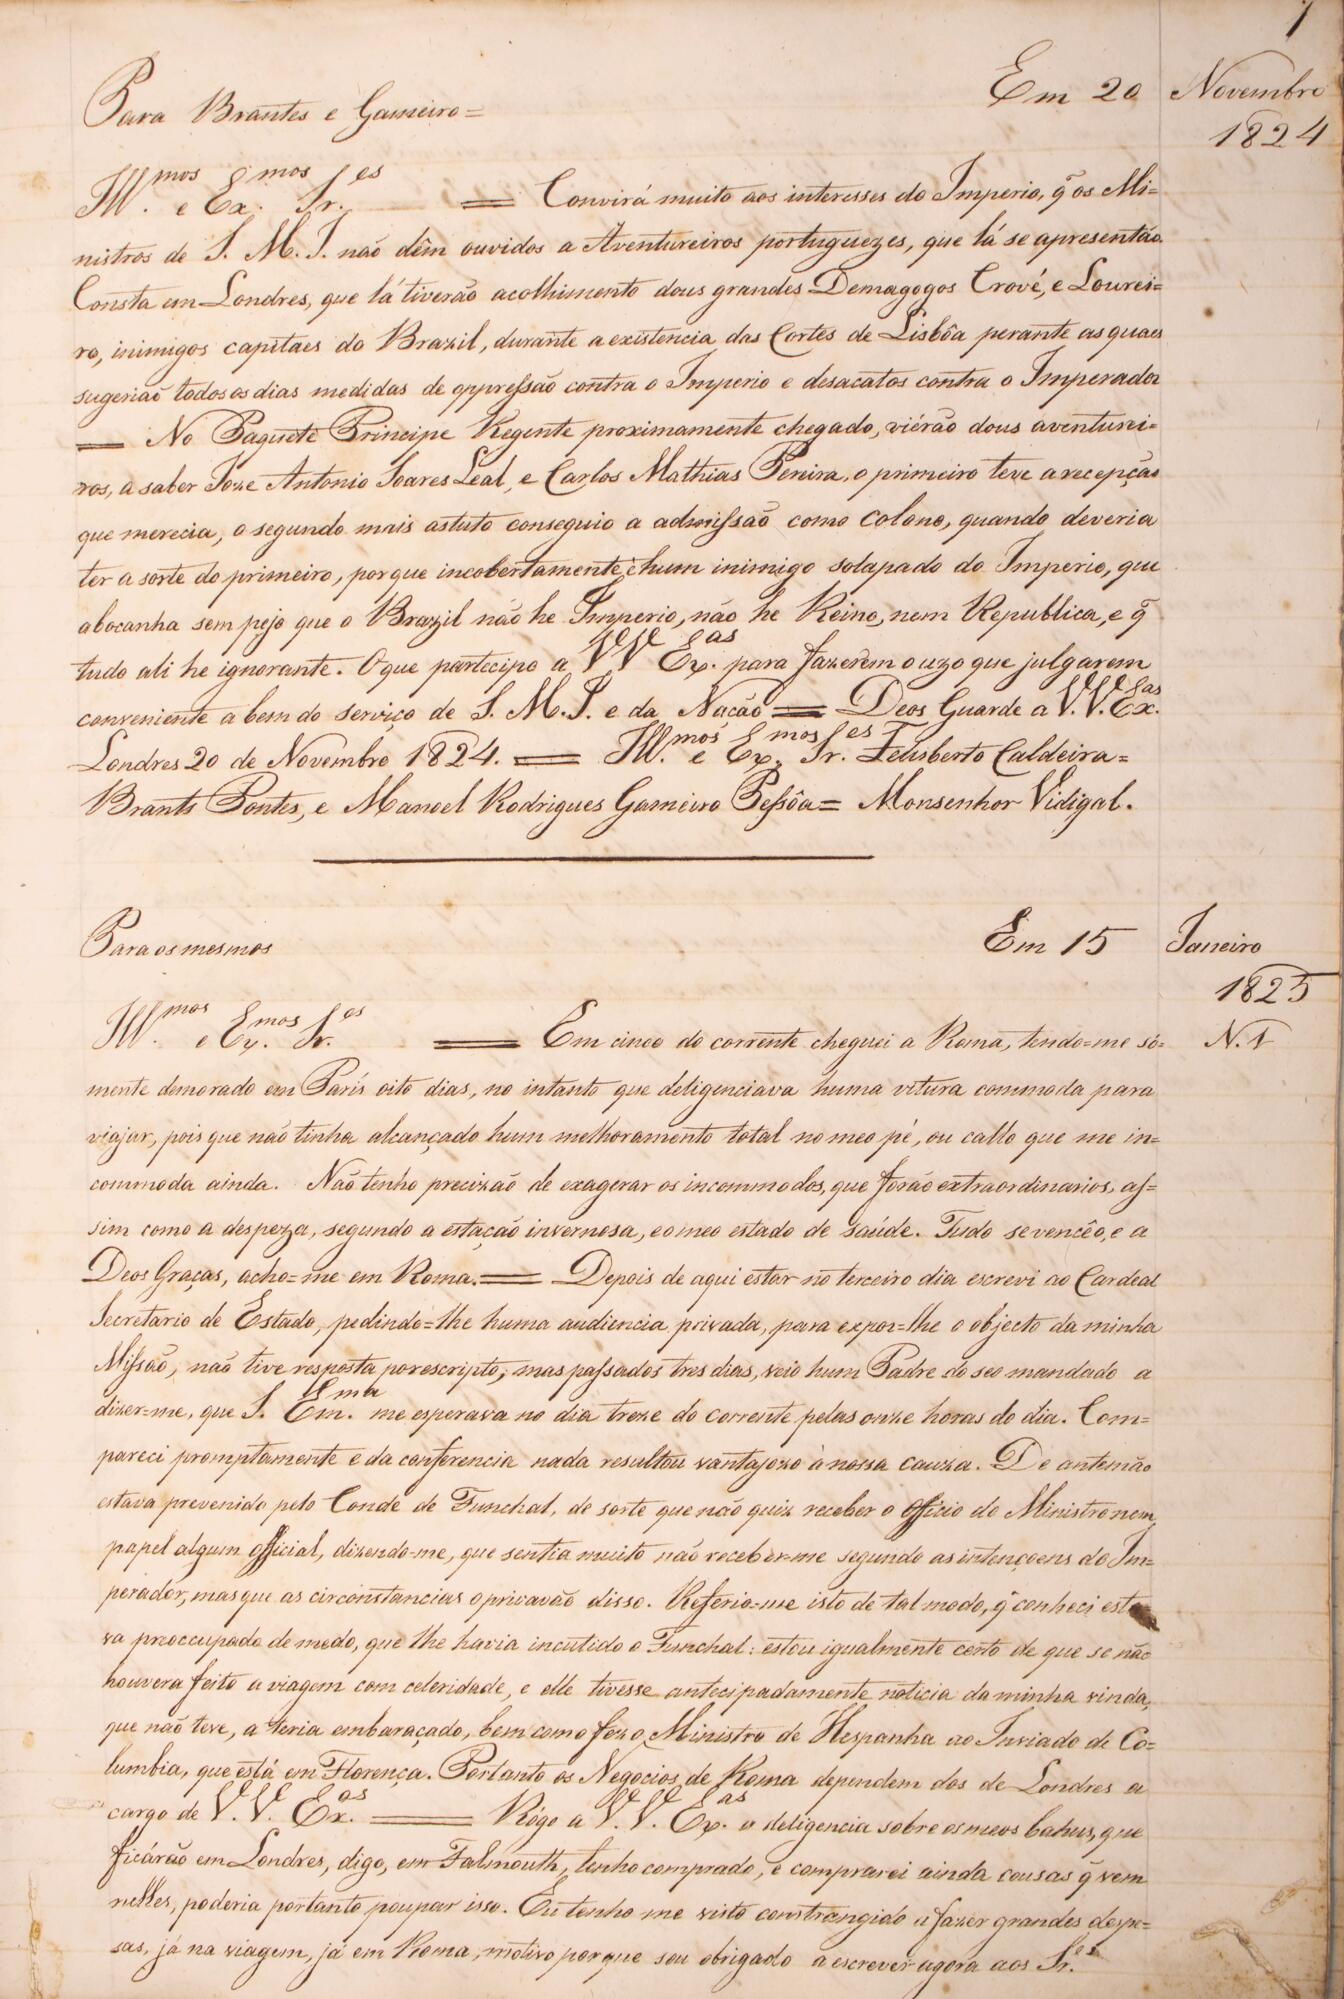 1
Para Brantes e Gameiro = Em 20 Novembro
1824
Ill.mos e Ex.mos Sr.es = Convirá muito aos interesses do Imperio, q̃ os Mi=
nistros de S. M. I. não dêm ouvidos a Aventureiros portuguezes, que lá se apresentão.
Consta em Londres, que lá tiverão acolhimento dous grandes Demagogos Crové, e Lourei=
ro, inimigos capitaes do Brazil, durante a existencia das Cortes de Lisbôa perante as quaes
sugerião todos os dias medidas de oppressão contra o Imperio e desacatos contra o Imperador
= No Paquete Principe Regente proximamente chegado, viérão dous aventuri=
ros, a saber Joze Antonio Soares Leal, e Carlos Mathias Pereira, o primeiro teve a recepção
que merecia, o segundo mais astuto conseguio a admissão como colono, quando deveria
ter a sorte do primeiro, porque incobertamente é hum inimigo solapado do Imperio, que
abocanha sem pejo que o Brazil não he Imperio, não he Reino, nem Republica, e q̃
tudo ali he ignorante. O que partecipo a VV Ex.as para fazerem o uzo que julgarem
conveniente a bem do serviço de S. M. I. e da Nação = Deos Guarde a V.V. Ex.as
Londres 20 de Novembro 1824. = Ill.mos e Ex.mos Sr.es Felisberto Caldeira =
Brants Pontes, e Manoel Rodrigues Gameiro Pessôa = Monsenhor Vidigal.
Para os mesmos Em 15 Janeiro
1825
Ill.mos e Ex.mos Sr.es = Em cinco do corrente cheguei a Roma, tendo=me só= N. 1
mente demorado em París oito dias, no intanto que deligenciava huma vitura commoda para
viajar, pois que não tinha alcançado hum melhoramento total no meo pé, ou callo que me in=
commoda ainda. Não tenho precizão de exagerar os incommodos, que forão extraordinarios, as=
sim como a despeza, segundo a estação invernosa, e o meo estado de saúde. Tudo se vencêo, e a
Deos Graças, acho=me em Roma. = Depois de aqui estar no terceiro dia escrevi ao Cardeal
Secretario de Estado, pedindo=lhe huma audiencia privada, para expor=lhe o objecto da minha
Missão, não tive resposta por escripto; mas passados tres dias, veio hum Padre do seo mandado a
dizer=me, que S. Em.ma me esperava no dia treze do corrente pelas onze horas do dia. Com=
pareci promptamente e da conferencia nada resultou vantajozo à nossa cauza. De antemão
estava prevenido pelo Conde de Funchal, de sorte que não quiz receber o Officio do Ministro nem
papel algum official, dizendo=me, que sentia muito não receber=me segundo as intençoens do Im=
perador, mas que as circonstancias o privavão disso. Referio=me isto de tal modo, q̃ conheci esta=
va preoccupado de medo, que lhe havia incutido o Funchal: estou igualmente certo de que se não
houvera feito a viagem com celeridade, e elle tivesse antecipadamente noticia da minha vinda,
que não teve, a teria embaraçado, bem como fez o Ministro de Hespanha ao Inviado de Co=
lumbia, que está em Florença. Portanto os Negocios de Roma dependem dos de Londres a
cargo de V.V. Ex.as = Rógo a V.V. Ex.as a deligencia sobre os meos bahus, que
ficárão em Londres, digo, em Falmouth, tenho comprado, e comprarei ainda cousas q̃ vem
nelles, poderia portanto poupar isso. Eu tenho me visto constrangido a fazer grandes despe=
sas, já na viagem, já em Roma, motivo porque sou obrigado a escrever agora aos Sr.es